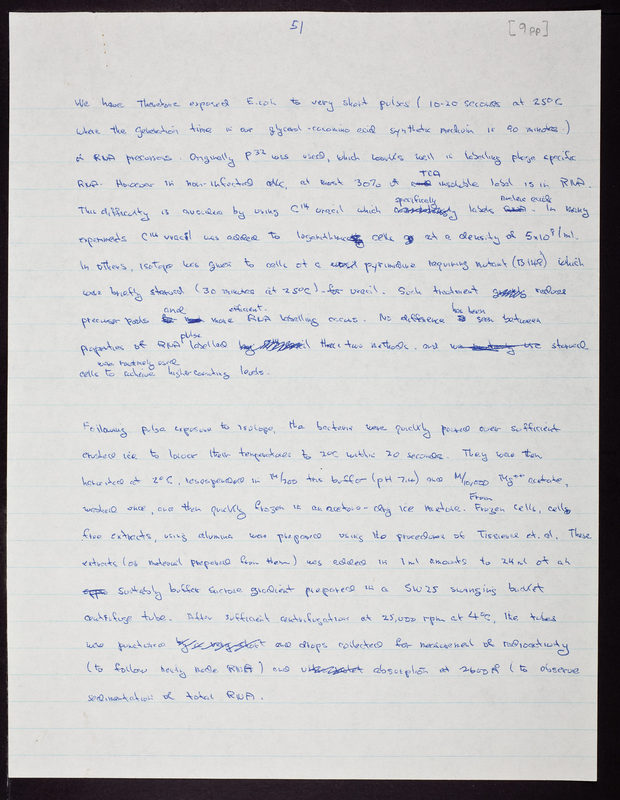 51
[9pp]
We have therefore exposed E. coli to very short pulses (10-20 seconds at 25°C
where the generation time in our glycerol-casamino acid synthetic medium is 90 minutes)
of RNA precursors. Originally P32 was used, which works well in labelling phage specific
TCA
RNA. However in non-infected cells, at most 30% of insoluble label is in RNA.
specifically nucleic acids
This difficulty is avoided by using C14 uracil which labels RNA. In many
experiments C14 uracil was added to logarithmic cells at a density of 5x10^8/ml.
In others, isotope was given to cells of a pyrimidine requiring mutant (B148) which
was briefly starved (30 minutes at 25°C) for uracil. Such treatment reduces
and efficient has been
precursor pools more RNA labelling occurs. No difference seen between
pulse
properties of RNA labelled these two methods and starved
was routinely used
cells to achieve higher counting levels.
Following pulse exposure to isotope, the bacteria were quickly poured over sufficient
crushed ice to lower their temperature to 2°C within 20 seconds. They were then
harvested at 2°C, resuspended in M/200 tris buffer (pH 7.4) and M/10,000 Mg++ acetate,
washed once, and then quickly frozen in an acetone-dry ice mixture. From Frozen cells, cell
free extracts, using alumina were prepared using the procedures of Tissieres et. al. These
extracts (or material prepared from them) was added in 1 ml amounts to 24 ml of a
suitably buffer sucrose gradient prepared in a SW25 swinging bucket
centrifuge tube. After sufficient centrifugation at 25,000 rpm at 4°C, the tubes
was punctured and drops collected for measurement of radioactivity
(to follow newly made RNA) and absorption at 2600Å (to observe
sedimentation of total RNA.